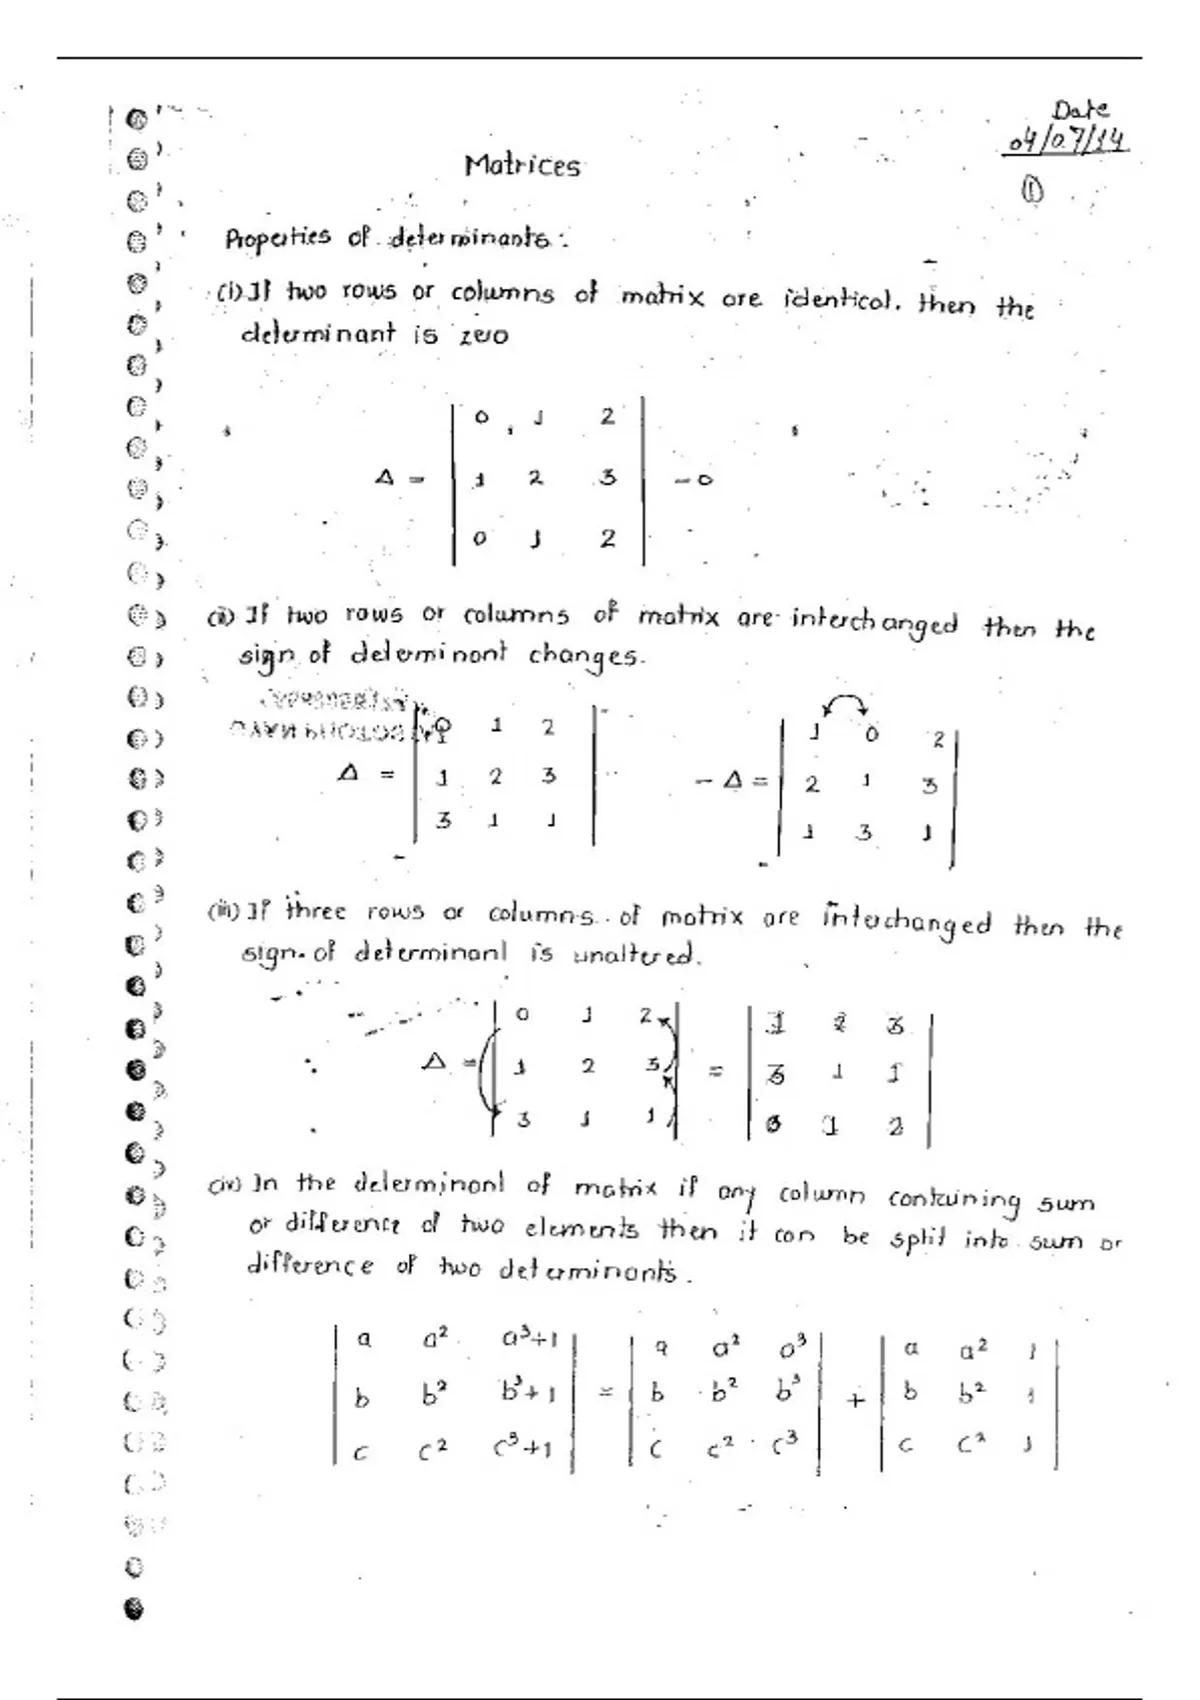 Date
04/07/14
Matrices
①
Properties of determinants:
(i) If two rows or columns of matrix are identical. then the
determinant is zero
0 1 2
Δ = 1 2 3 - 0
0 1 2
(ii) If two rows or columns of matrix are interchanged then the
sign of determinant changes.
0 1 2 1 0 2
Δ = 1 2 3 - Δ = 2 1 3
3 1 1 1 3 1
(iii) If three rows or columns of matrix are interchanged then the
sign of determinant is unaltered.
0 1 2 1 2 3
Δ = 1 2 3 = 3 1 1
3 1 1 0 1 2
(iv) In the determinant of matrix if any column containing sum
or difference of two elements then it can be split into sum or
difference of two determinants.
a a² a³+1 a a² a³ a a² 1
b b² b³+1 = b b² b³ + b b² 1
c c² c³+1 c c² c³ c c² 1